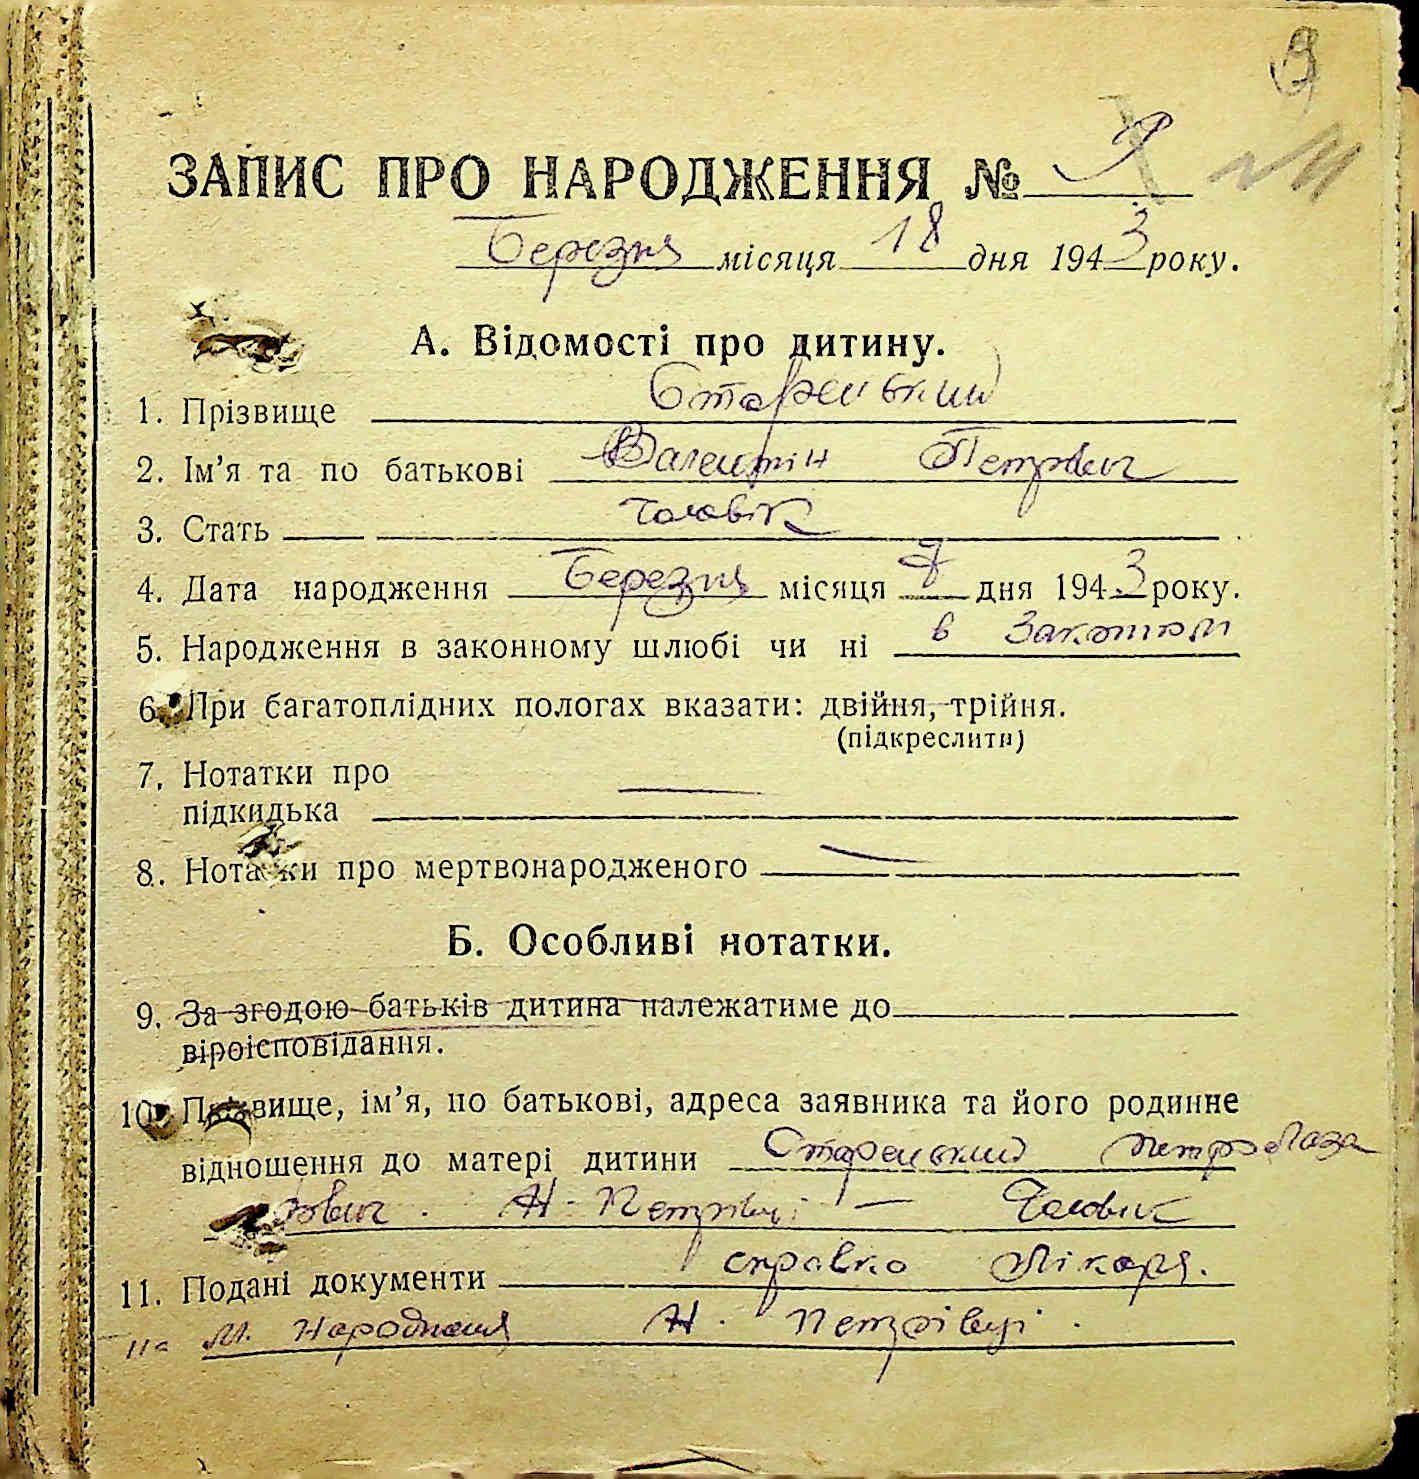 9
ЗАПИС ПРО НАРОДЖЕННЯ № 9
Березня місяця 18 дня 1943 року.
А. Відомості про дитину.
1. Прізвище Старенький
2. Ім’я та по батькові Валентін Петрович
3. Стать Чоловік
4. Дата народження Березня місяця 7 дня 1943 року.
5. Народження в законному шлюбі чи ні в Законом
6. При багатоплідних пологах вказати: двійня, трійня.
(підкреслити)
7. Нотатки про
підкидька
8. Нотатки про мертвонародженого
Б. Особливі нотатки.
9. За згодою батьків дитина належатиме до
віроісповідання.
10. Прізвище, ім’я, по батькові, адреса заявника та його родинне
відношення до матері дитини Старенький Петро Лаза
рович. Н-Петрівці – Чоловік
11. Подані документи справка Лікаря.
М. Народження Н. Петрівці.